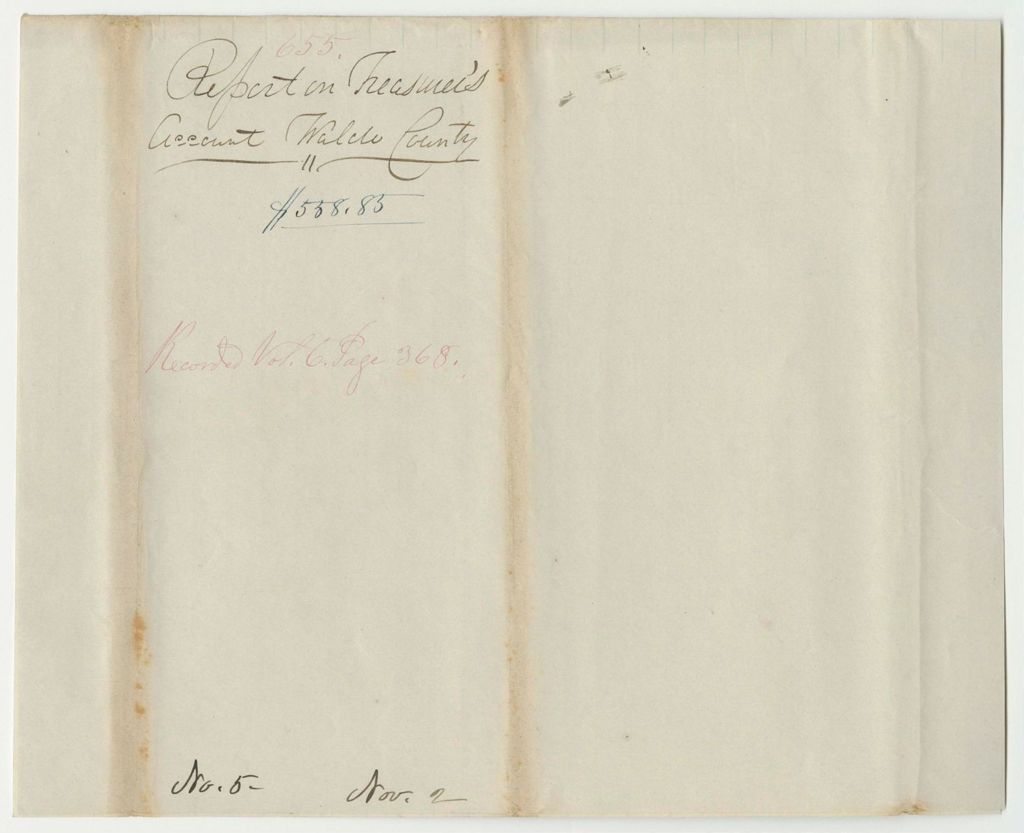 655.
Report on Treasurer's
Account Waldo County
"
$558.85
Recorded Vol. 6. Page 368.
No. 5- Nov. 2